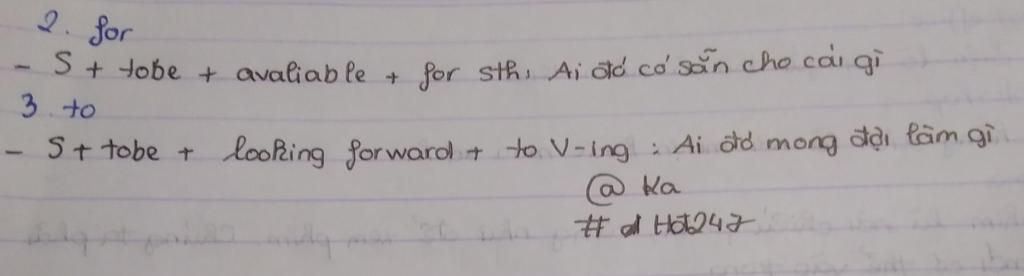 2. for
- S + tobe + avaliable + for sth: Ai đó có sẵn cho cái gì
3. to
- S + tobe + looking forward + to V-ing : Ai đó mong đợi làm gì
@ Ka
# Hđ247